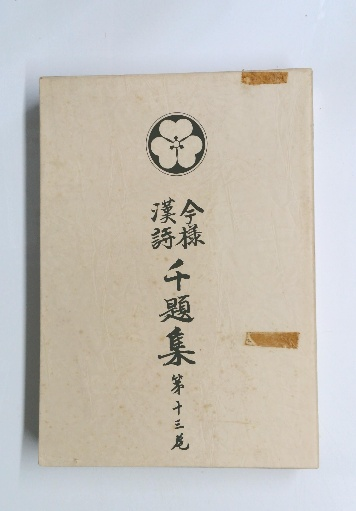 今様
漢詩
千題集
第十三巻